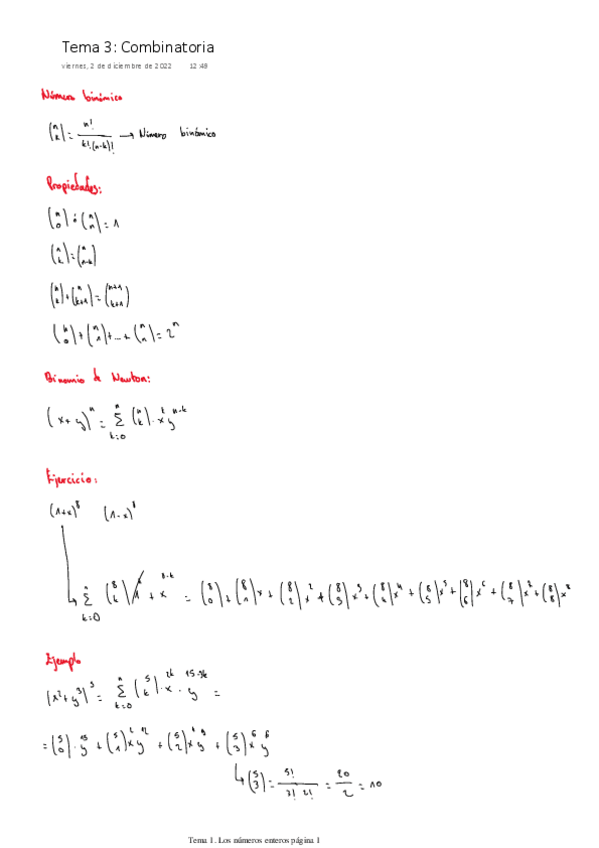 Tema 3: Combinatoria
viernes, 2 de diciembre de 2022 12:48
Número binómico
(n k) = n! / k!·(n-k)! → Número binómico
Propiedades:
(n 0) = (n n) = 1
(n k) = (n n-k)
(n k) + (n k+1) = (n+1 k+1)
(n 0) + (n 1) + ... + (n n) = 2^n
Binomio de Newton:
(x+y)^n = Σ_{k=0}^{n} (n k)·x^k y^{n-k}
Ejercicio:
(1+x)^8 (1-x)^8
Σ_{k=0}^{n} (8 k) 1^k + x^{8-k} = (8 0) + (8 1)x + (8 2)x^2 + (8 3)x^3 + (8 4)x^4 + (8 5)x^5 + (8 6)x^6 + (8 7)x^7 + (8 8)x^8
Ejemplo
(x^2+y^3)^5 = Σ_{k=0}^{n} (5 k)·x^{2k}·y^{15-3k} =
= (5 0)·y^{15} + (5 1)x^2 y^{12} + (5 2)x^4 y^9 + (5 3)x^6 y^6
↳ (5 3) = 5! / 3! 2! = 20 / 2 = 10
Tema 1. Los números enteros página 1